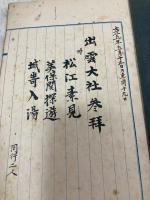 出雲大社参拝
松江素見
美保関探遊
城崎入湯
同行二人